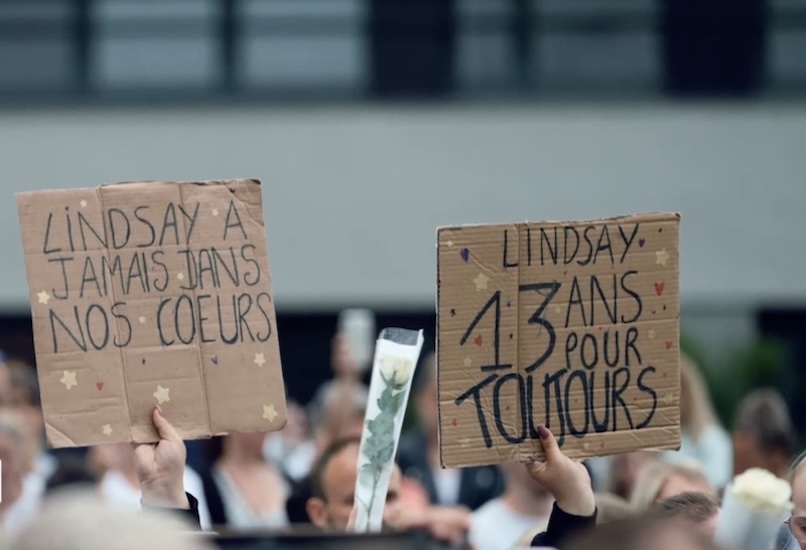 LINDSAY A
JAMAIS DANS
NOS COEURS
LINDSAY
13 ANS
POUR
TOUJOURS